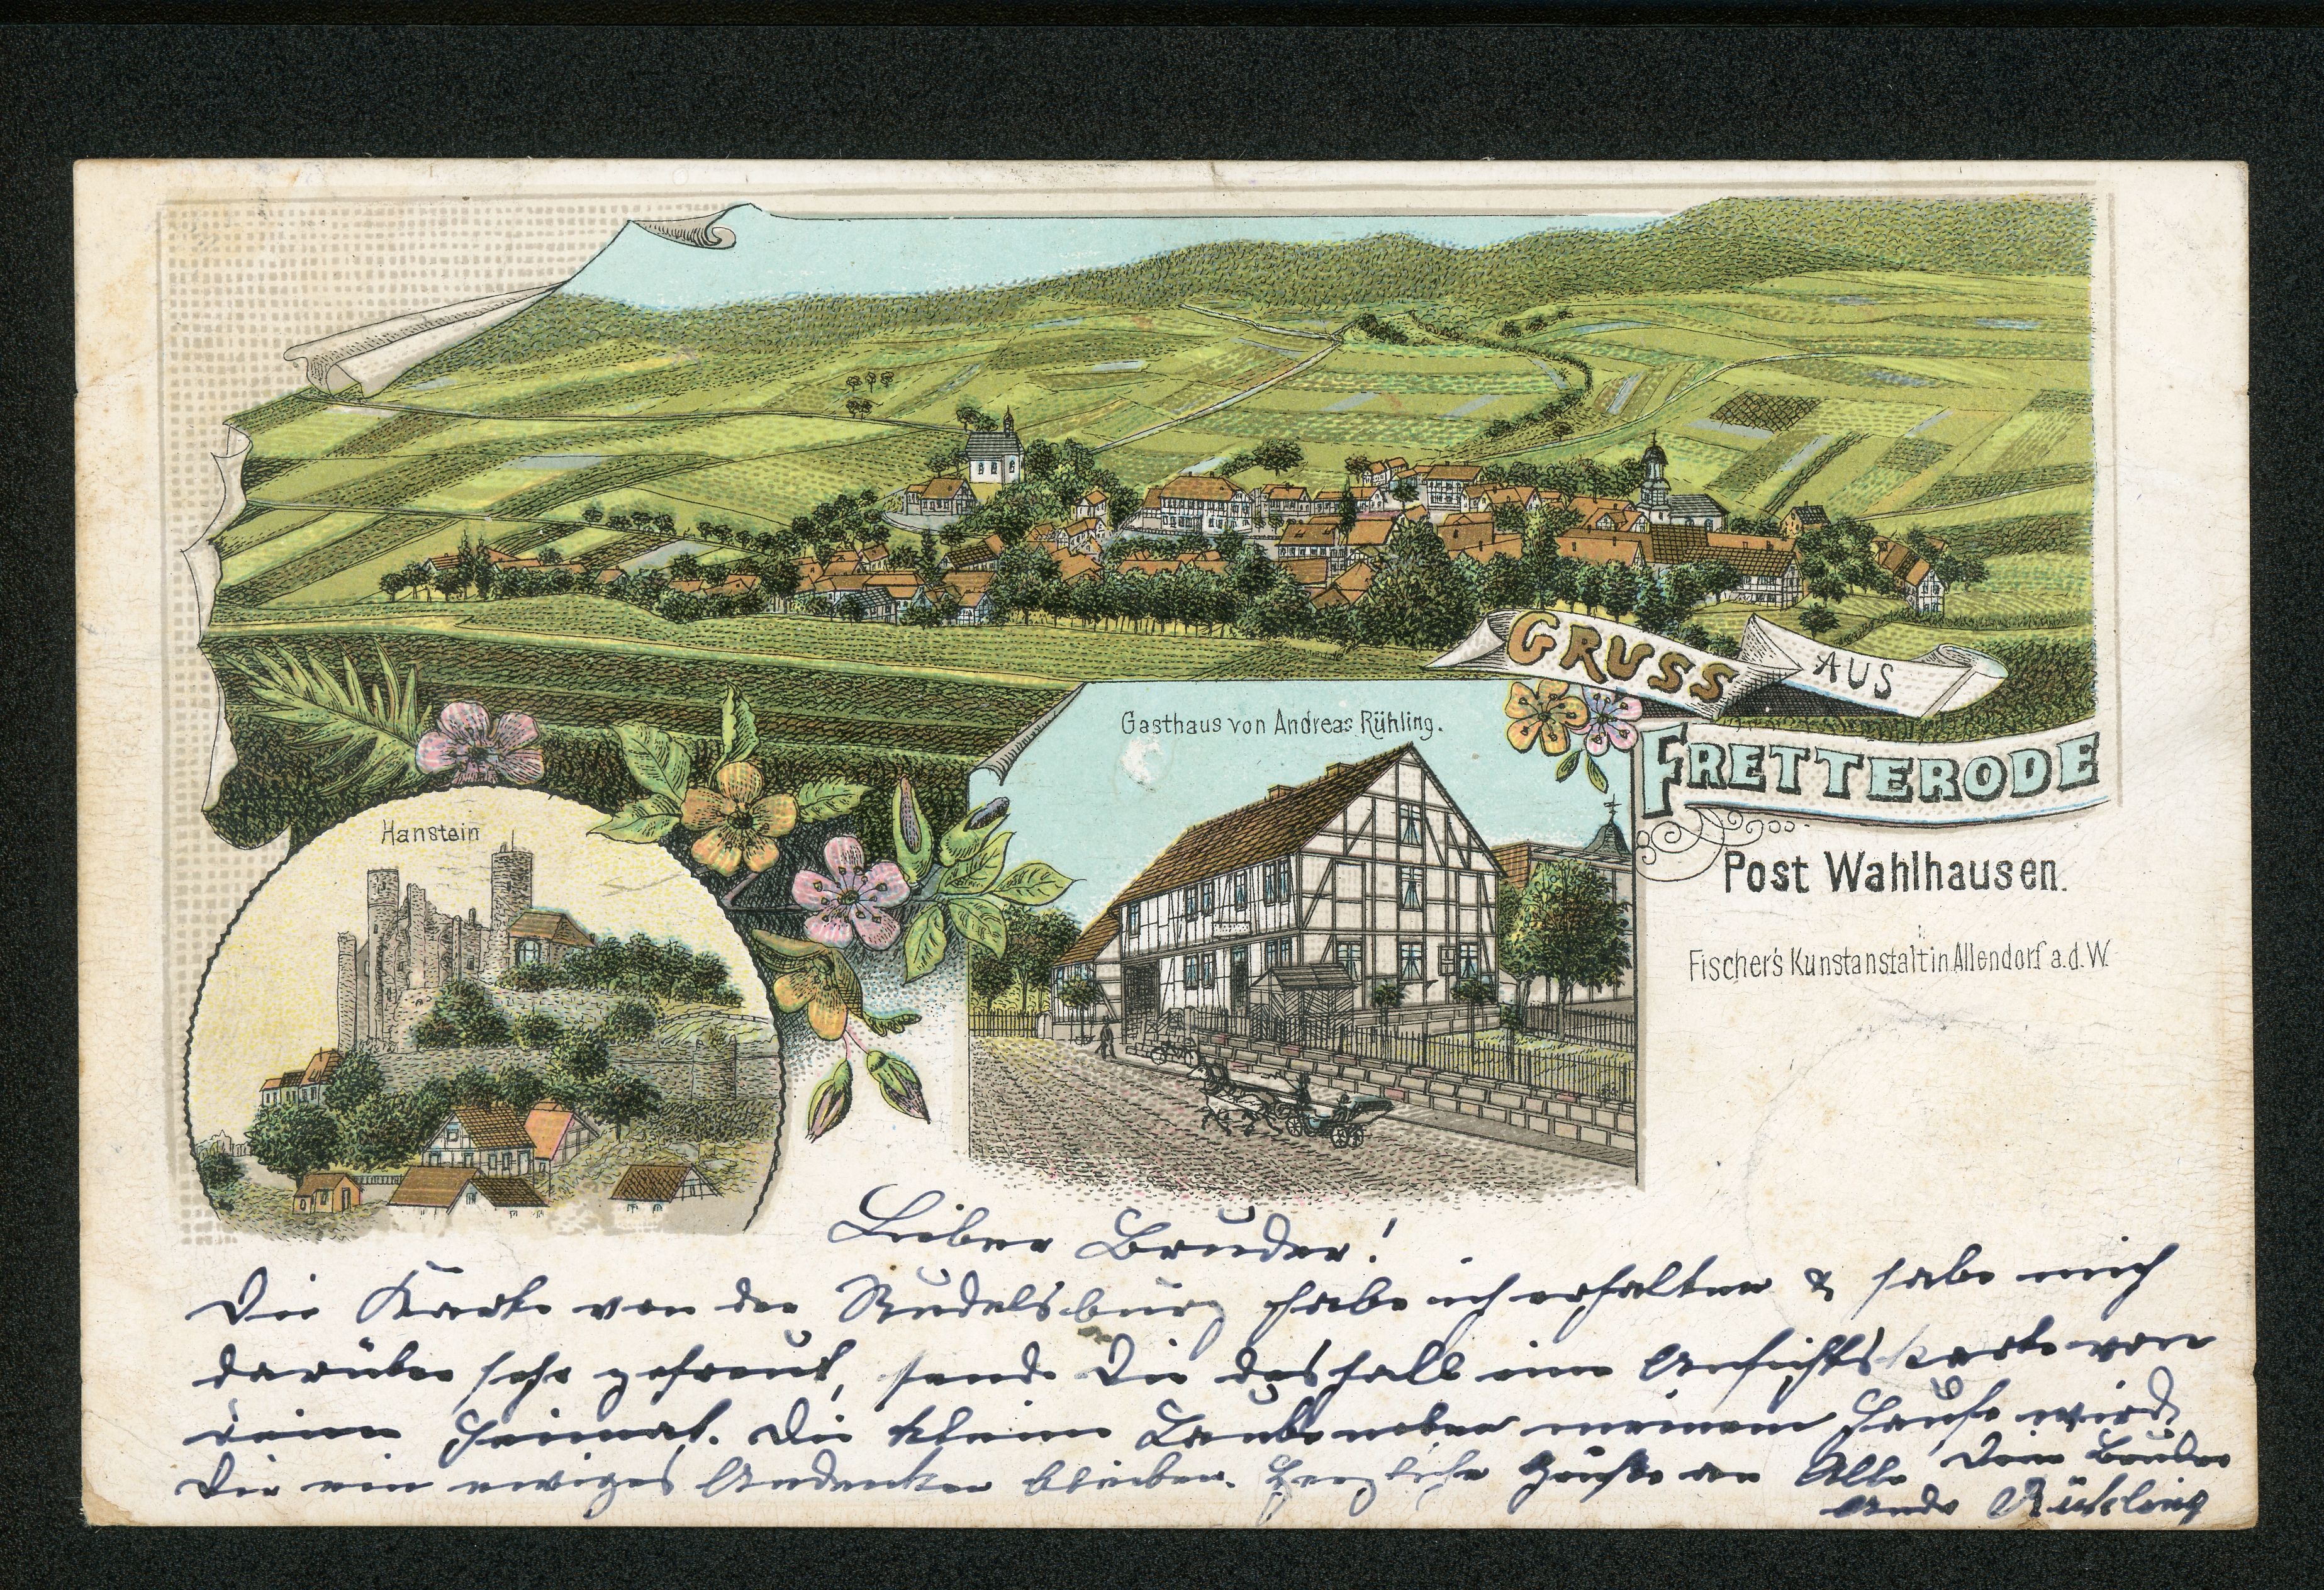 GRUSS AUS
FRETTERODE
Post Wahlhausen.
Fischer's Kunstanstalt in Allendorf a.d.W.
Gasthaus von Andreas Rühling.
Hanstein
Lieber Bruder!
Die Karte von der Rudelsburg habe ich erhalten & habe mich
darüber sehr gefreut, sende Dir deshalb eine Ansichtskarte von
deiner Heimat. Die kleine Laube neben meinem Hause wird
Dir ein ewiges Andenken bleiben. Herzliche Grüße an Alle Dein Bruder
Andr Rühling